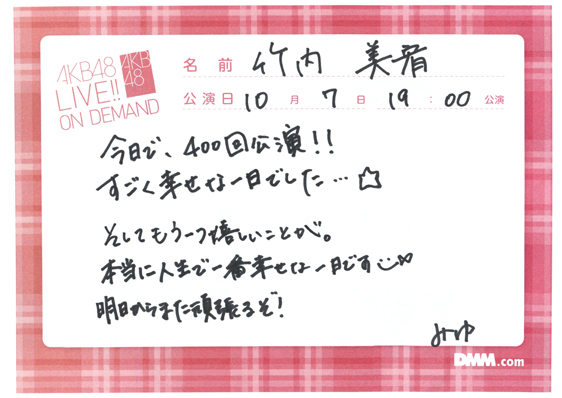 AKB48
LIVE!!
ON DEMAND
AKB
48
名前 竹内 美宥
公演日 10月 7日 19:00 公演
今日で、400回公演!!
すごく幸せな一日でした…☆
そしてもう一つ嬉しいことが。
本当に人生で一番幸せな一日です
明日からまた頑張るぞ!
みゆ
DMM.com